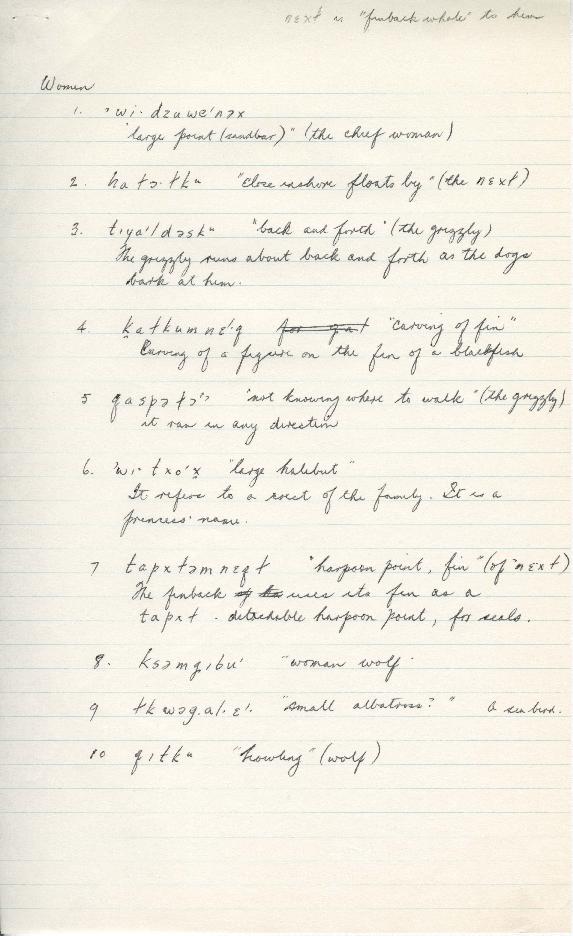 nɛxł is "finback whale" to him
Women
1. 'wi· dzuwe'nəx
"large point (sandbar)" (the chief woman)
2. hałɔ·tkᵘ "close inshore floats by" (the nɛxł)
3. tɩya'ldəskᵘ "back and forth" (the grizzly)
The grizzly runs about back and forth as the dogs
bark at him.
4. "carving of fin"
Carving of a figure on the fin of a blackfish
5 "not knowing where to walk" (the grizzly)
it ran in any direction
6. 'wi· txo'x̣ "large halibut"
It refers to a crest of the family. It is a
princess' name.
7 tapxłəmnɛqł "harpoon point, fin" (of nɛxł)
The finback uses its fin as a
tapxł - detachable harpoon point, for seals.
8. ksəmgɩbu' "woman wolf"
9 łkwəg.al·ɛ'· "small albatross?" a sea bird.
10 qɩtkᵘ "howling" (wolf)